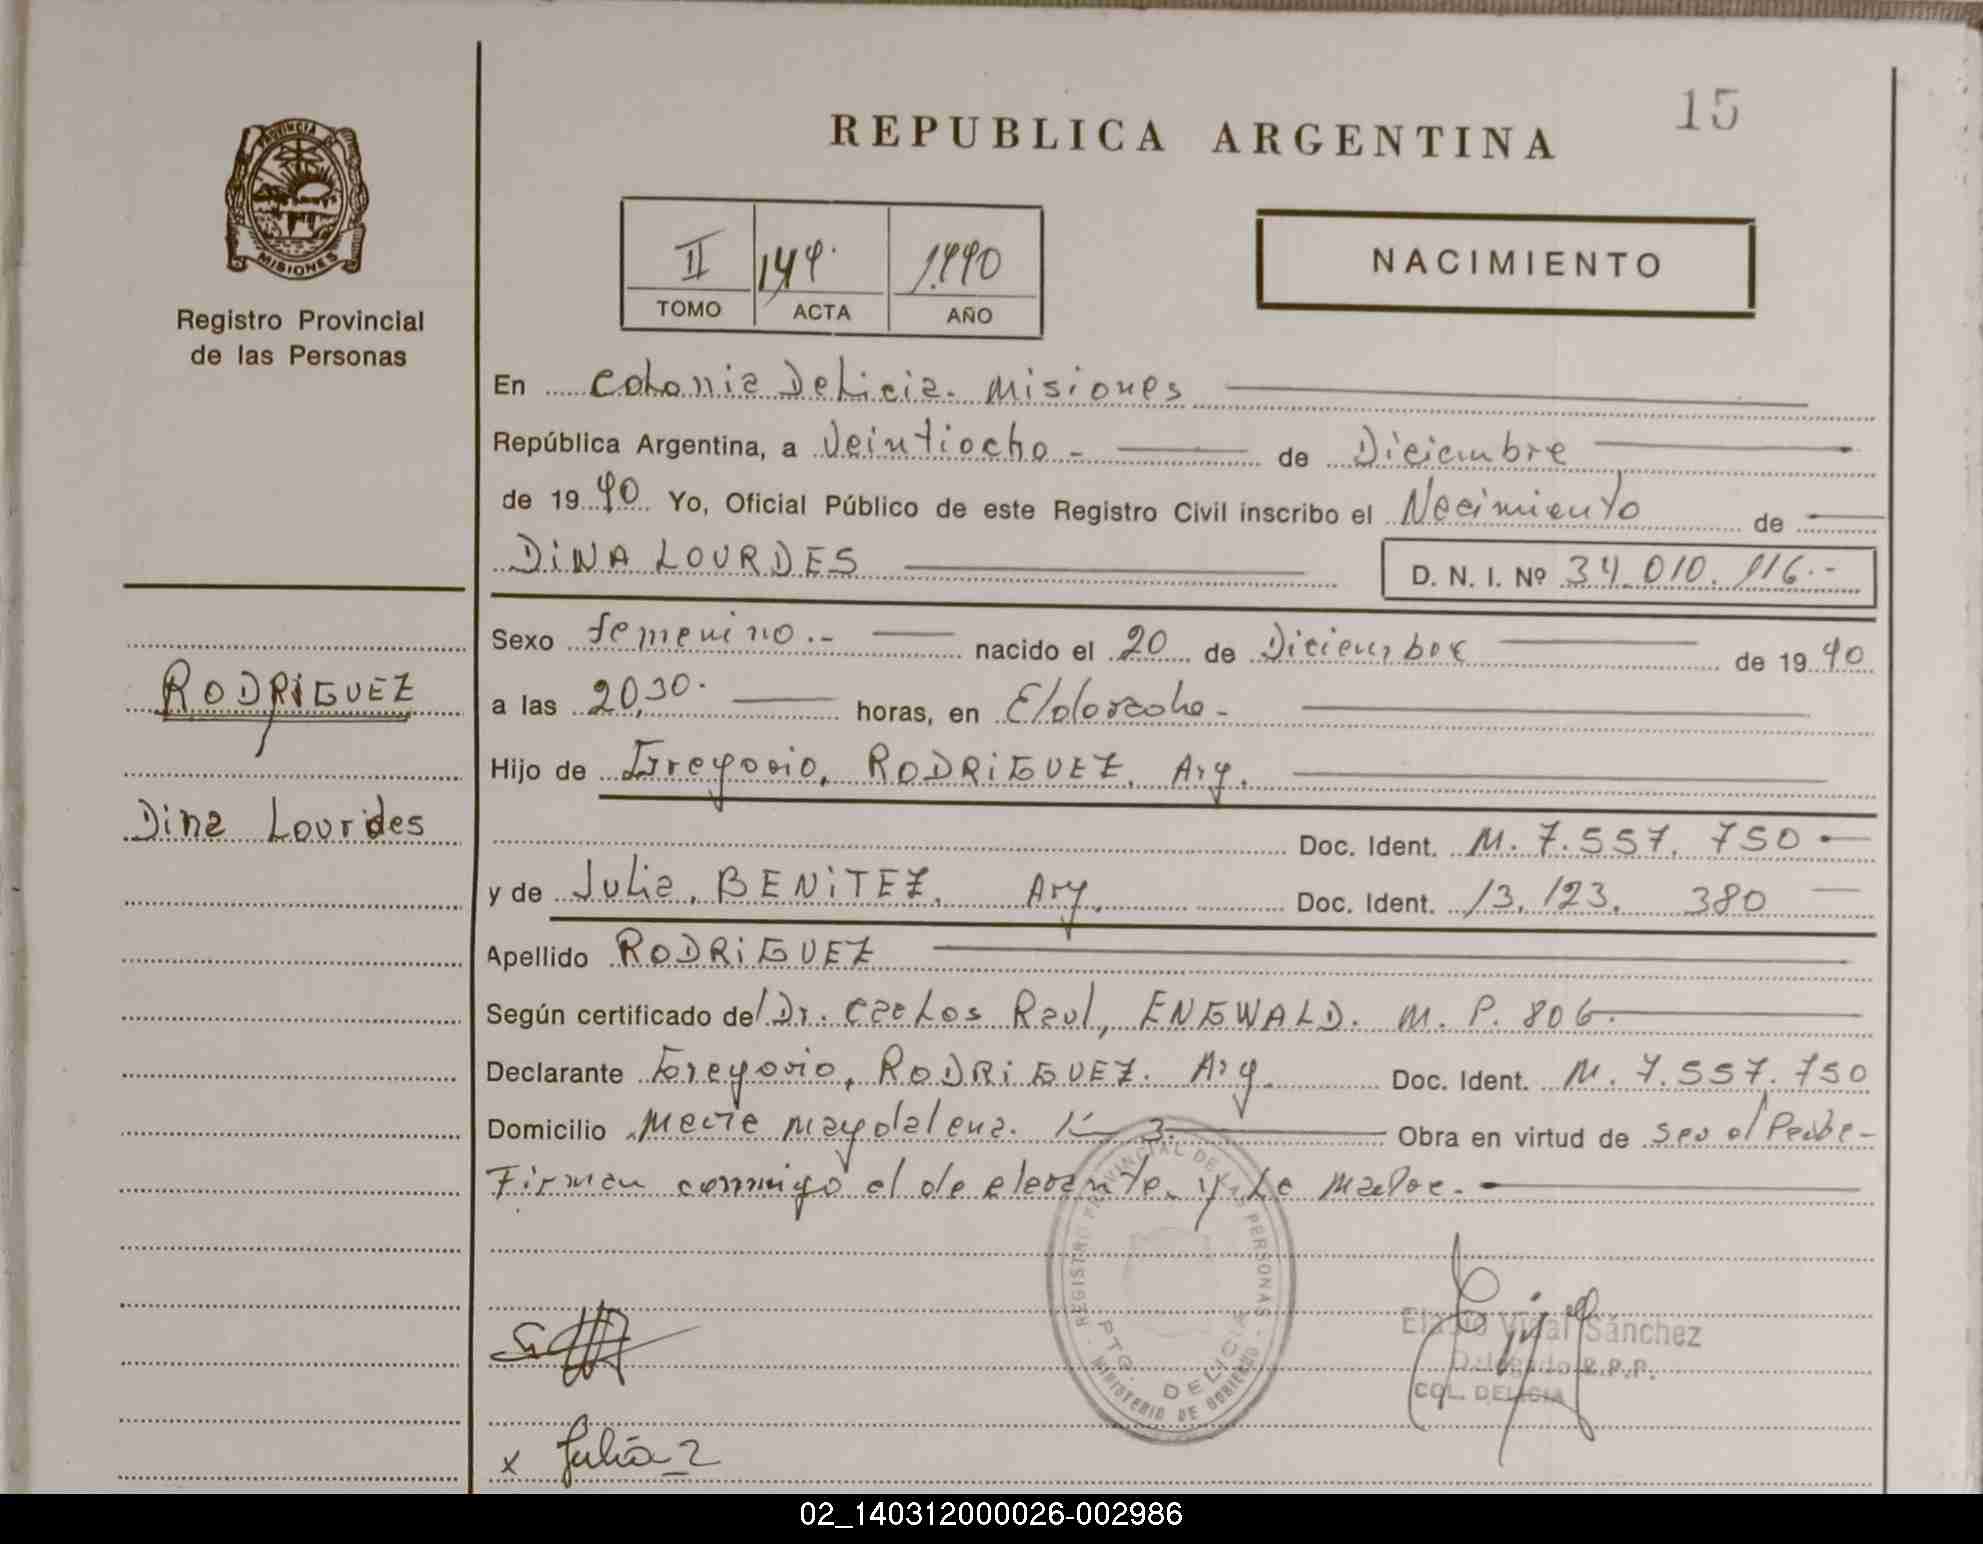 15
REPUBLICA ARGENTINA
PROVINCIA DE
MISIONES
Registro Provincial
de las Personas
II 149. 1.990
TOMO ACTA AÑO
NACIMIENTO
En Colonia Delicia. Misiones
República Argentina, a Veintiocho - de Diciembre
de 1990 Yo, Oficial Público de este Registro Civil inscribo el Nacimiento de
DINA LOURDES D. N. I. Nº 34.010.116.-
Sexo femenino.- nacido el 20 de Diciembre de 1990
RODRIGUEZ
a las 20,30. horas, en Eldorado -
Hijo de Gregorio, RODRIGUEZ. Arg.
Dina Lourdes
Doc. Ident. M. 7.557.750
y de Julia, BENITEZ. Arg. Doc. Ident. 13.123.380
Apellido RODRIGUEZ
Según certificado del Dr. Carlos Raul, ENGWALD. M. P. 806.
Declarante Gregorio, RODRIGUEZ. Arg. Doc. Ident. M. 7.557.750
Domicilio Maria Magdalena. K 3. Obra en virtud de ser el Padre-
Firman conmigo el declarante y la Madre.
REGISTRO PROVINCIAL DE LAS PERSONAS
PTO. DELICIA
MINISTERIO DE GOBIERNO
Vidal Sánchez
Delegado R.P.P.
COL. DELICIA
x Julia
02_140312000026-002986